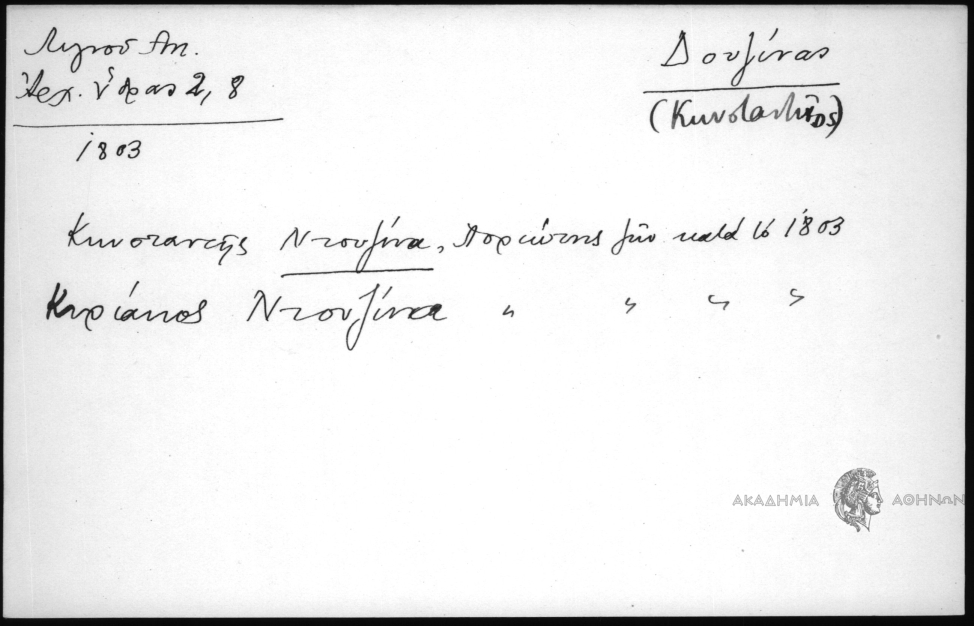 Λιγνοῦ Ἀπ.
Ἀρχ. Ὕδρας 2, 8
1803
Δουζίνας
(Κωνσταντῖνος)
Κωνσταντῆς Ντουζίνα, ζῶν κατά τό 1803
Κυριάκος Ντουζίνα " " " "
ΑΚΑΔΗΜΙΑ ΑΘΗΝΩΝ